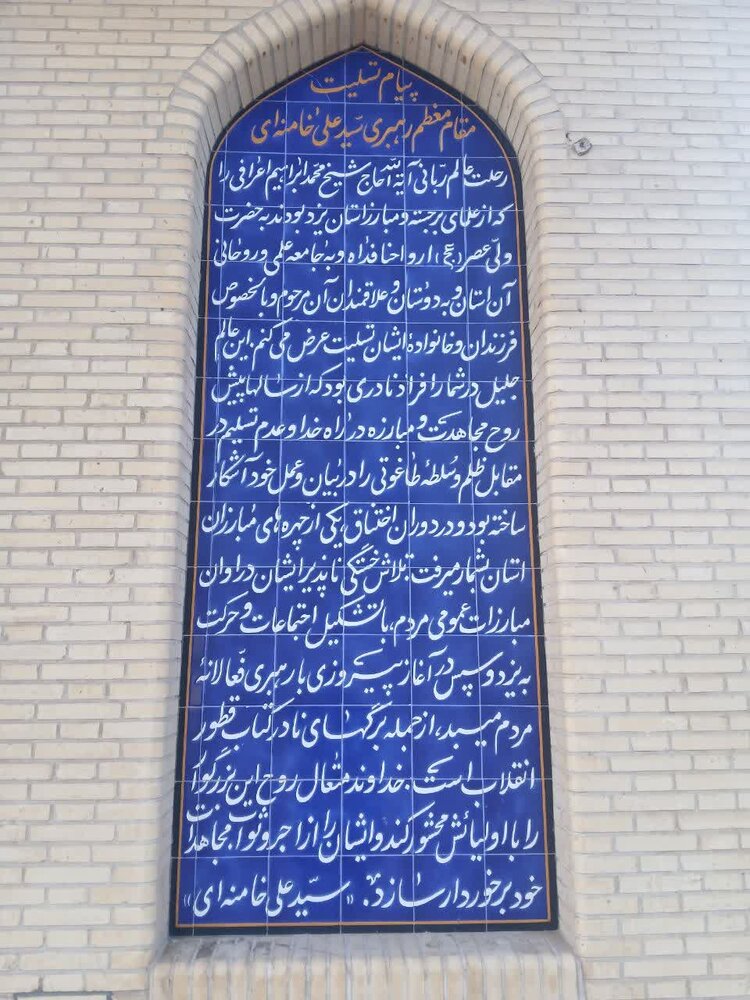 پیام تسلیت
مقام معظم رهبری سیّد علی خامنه‌ای
رحلت عالم ربّانی آیة الله حاج شیخ محمّد ابراهیم اعرافی را
که از علمای برجسته و مبارز استان یزد بودند به حضرت
ولیّ عصر (عج) ارواحنا فداه و به جامعه علمی و روحانی
آن استان و به دوستان و علاقمندان آن مرحوم و بالخصوص
فرزندان و خانوادهٔ ایشان تسلیت عرض می کنم. این عالم
جلیل در شمار افراد نادری بود که از سالها پیش
روح مجاهدت و مبارزه در راه خدا و عدم تسلیم در
مقابل ظلم و سُلطهٔ طاغوتی را در بیان و عمل خود آشکار
ساخته بود و در دوران اختناق یکی از چهره های مبارزان
استان بشمار میرفت. تلاش خستگی ناپذیر ایشان در اوان
مبارزات عمومی مردم، با تشکیل اجتماعات و حرکت
به یزد و سپس در آغاز پیروزی با رهبری فعّالانهٔ
مردم میبد، از جمله برگهای نادر کتاب قطور
انقلاب است. خداوند متعال روح این بزرگوار
را با اولیائش محشور کند و ایشان را از اجر و ثواب مجاهدات
خود برخوردار سازد. «سیّد علی خامنه‌ای»